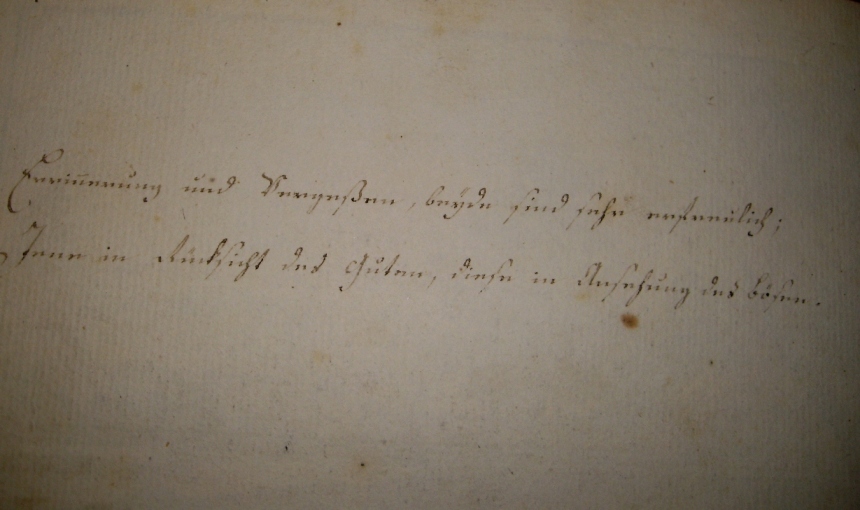 Erinnerung und Vergeßen, beyde sind sehr erfreulich;
Jene in Rücksicht des Guten, diese in Ansehung des bösen.